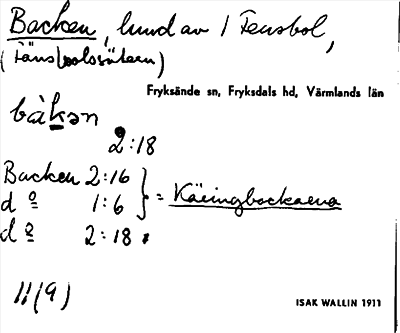 Backen, lund av 1 Fensbol,
(Fänsbolssätern)
Fryksände sn, Fryksdals hd, Värmlands län
bàkən
2:18
Backen 2:16
d o 1:6 } = Käringbackarna
d o 2:18
11(9)
ISAK WALLIN 1911